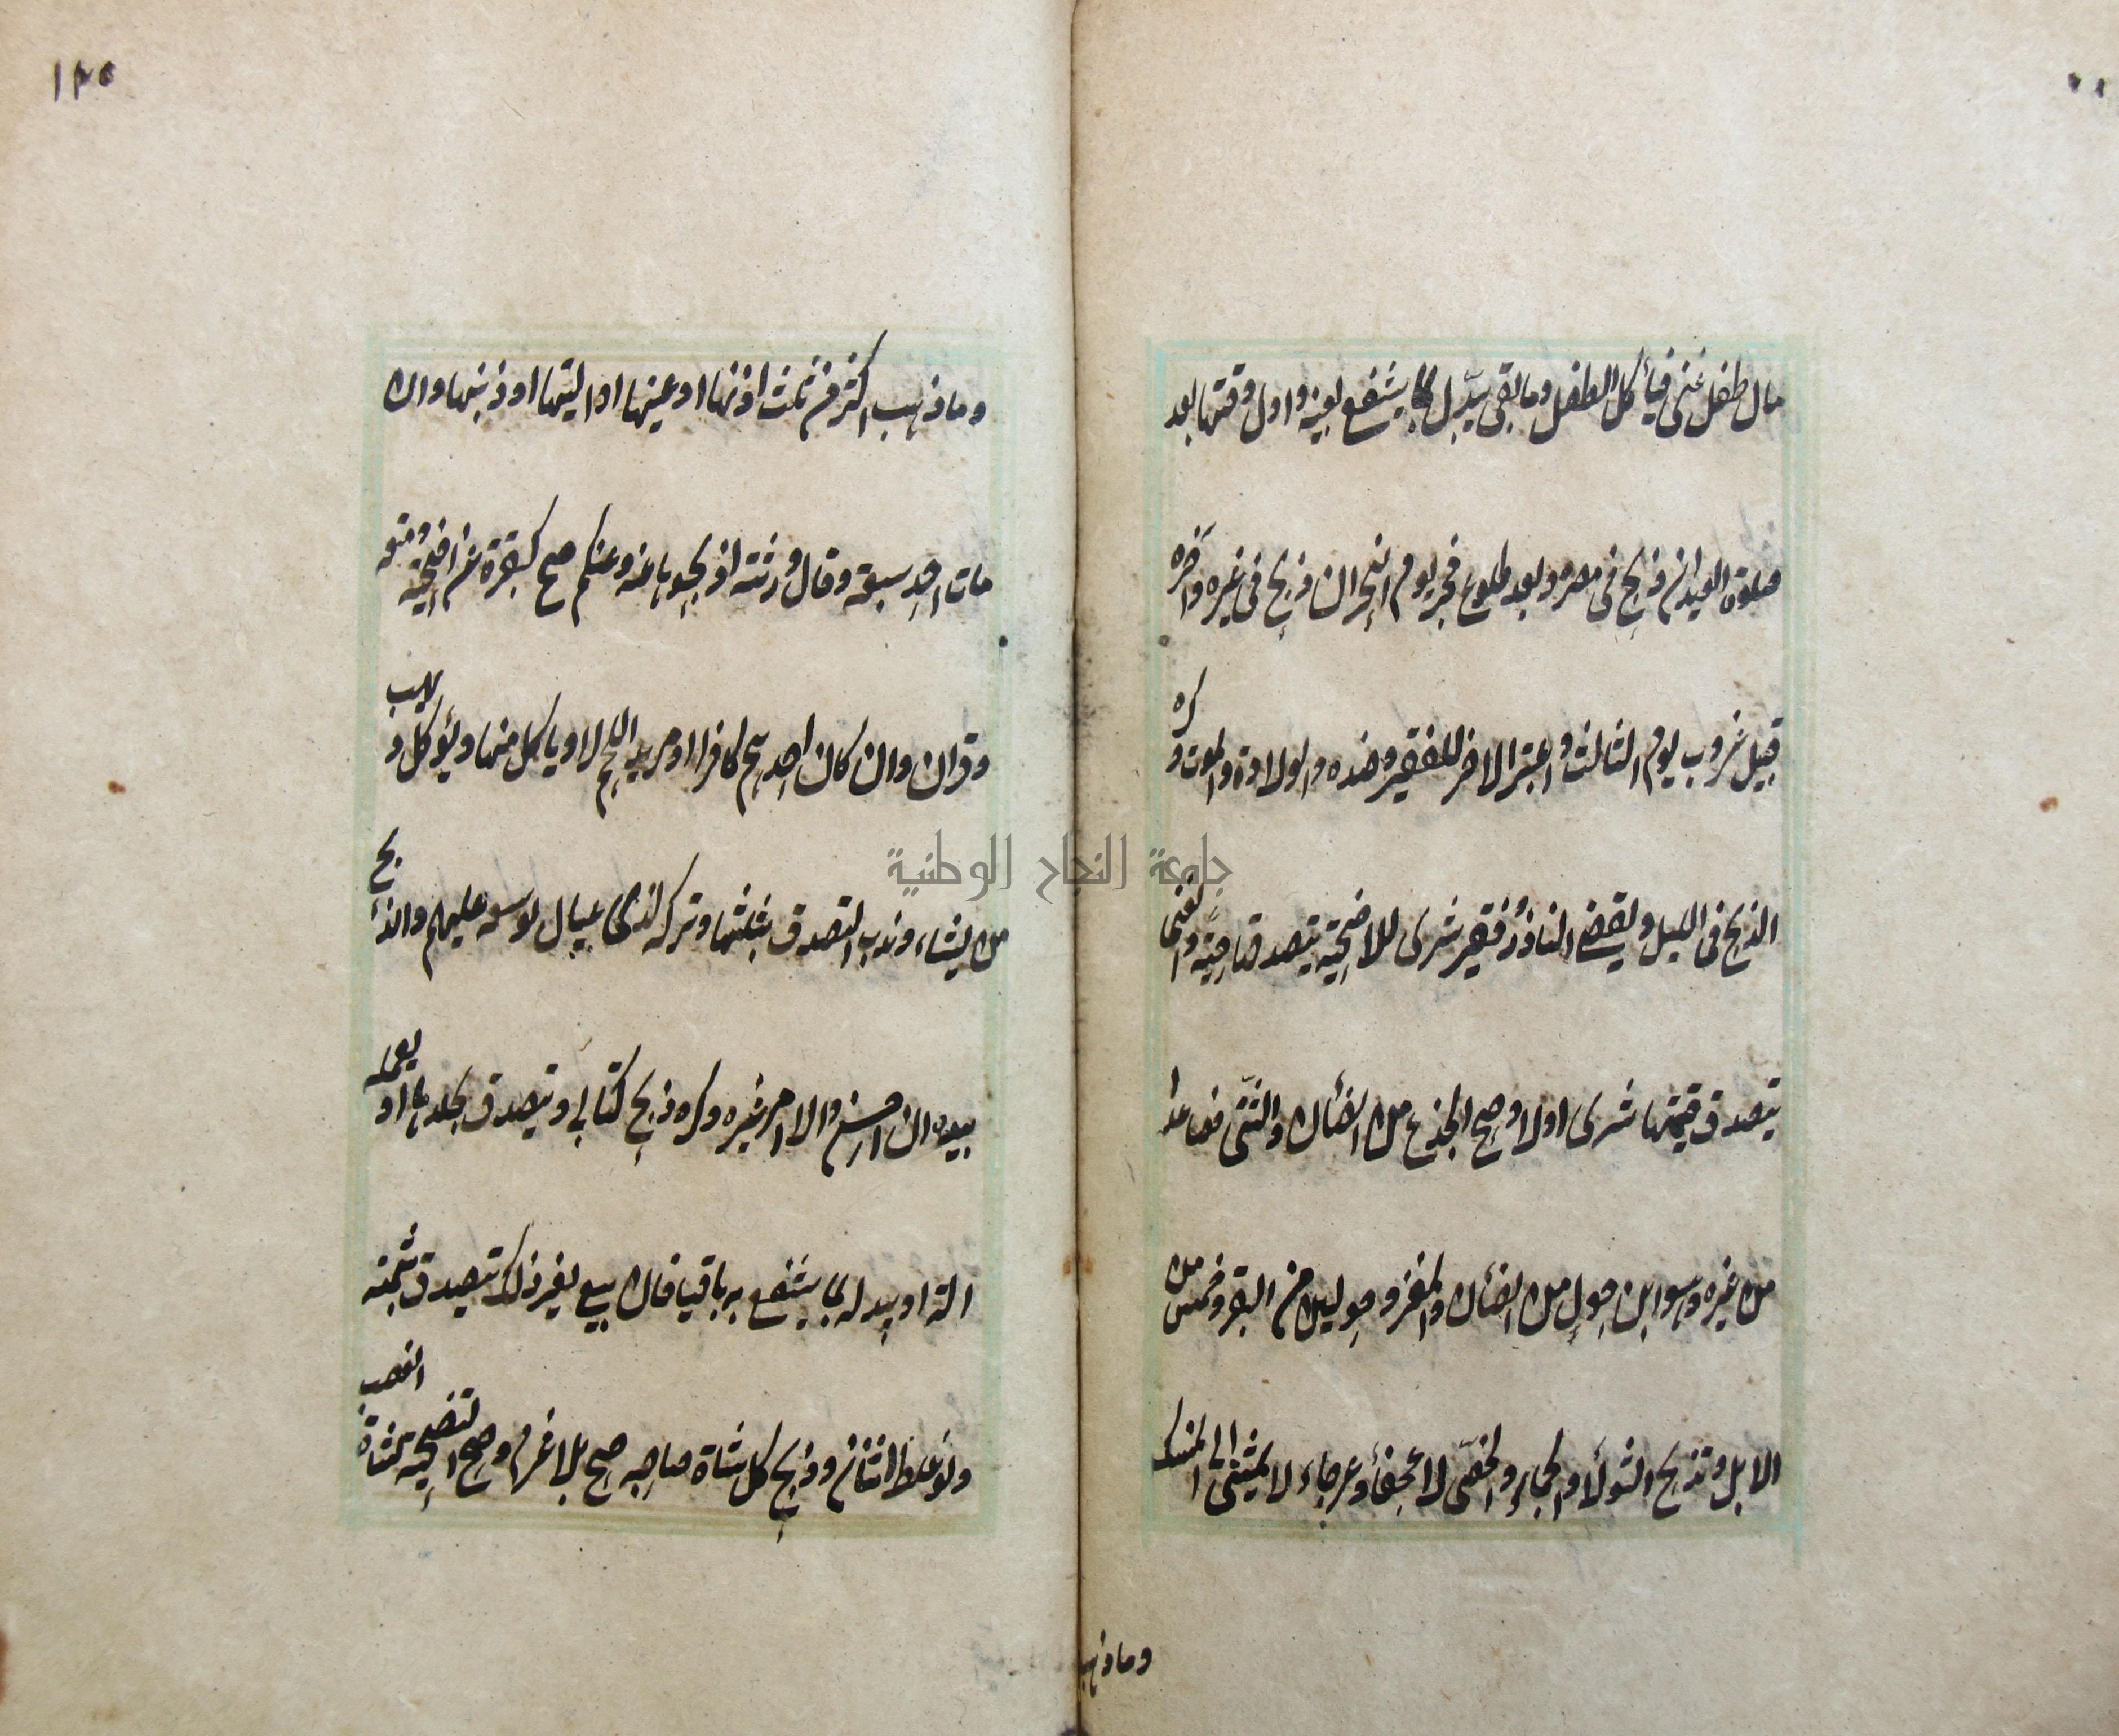 مال طفل غنى فيأكل الطفل وما بقى يبدّل بما ينتفع بعينه واول وقتها بعد
صلوة العيد ان ذبح فى مصر وبعد طلوع فجر يوم النحر ان ذبح فى غيره واخره
قبيل غروب يوم الثالث واعتبر الاخر للفقير وضده والولادة والموت وكره
الذبح فى الليل ويقضى الناذر وفقير شرى للاضحية بتصدقها حية والغنى
يتصدق قيمتها شرى اولا وصح الجذع من الضأن والثنى فصاعدا
من غيره وهو ابن حول من الضأن والمعز وحولين من البقر وخمس من
الابل وتذبح الثولاء والجماء والخصى لا عجفاء وعرجاء لا يمشى الى المنسك
وما ذهب
١٢٥
وما ذهب اكثر من ثلث اذنها او عينها او اليتها او ذنبها وان
مات احد سبعة وقال ورثته اذبحوها عنه وعنكم صح كبقرة عن اضحية ومتعة
وقران وان كان احدهم كافرا او مريد اللحم لا ويأكل منها ويؤكل ويهب
من يشاء وندب التصدق بثلثها وتركه لذى عيال توسعة عليهم والذبح
بيده ان احسن والا امر غيره وكره ذبح كتابى ويتصدق بجلدها او يعمله
الة او يبدله بما ينتفع به باقيا فان بيع بغير ذلك يتصدق بثمنه
ولو غلط اثنان وذبح كل شاة صاحبه صح بلا غرم وصح التضحية بشاة الغصب
جامعة النجاح الوطنية